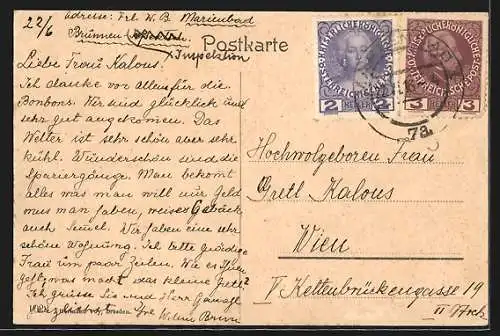 22/6
adresse: Frl. W. B. Marienbad
Brünnen
Inspektion
Postkarte
Liebe Frau Kalous
Ich danke vor Allem für die
Bonbons. Wir sind glücklich und
sehr gut angekommen. Das
Wetter ist sehr schön aber sehr
kühl. Wunderschön sind die
Spaziergänge. Man bekommt
alles was man will nur Geld
mus man haben, weises Gebäck
auch Semel. Wir haben eine sehr
schöne Wohnung. Ich bitte gnädige
Frau um paar Zeilen. Wie es Ihnen
geht, was macht das kleine
Ich grüsse Sie und Herr
Ihre
2 HELLER 2
3 HELLER 3
7a
Hochwolgeboren Frau
Gretl Kalous
Wien
V Kettenbrückengasse 19
II Stock